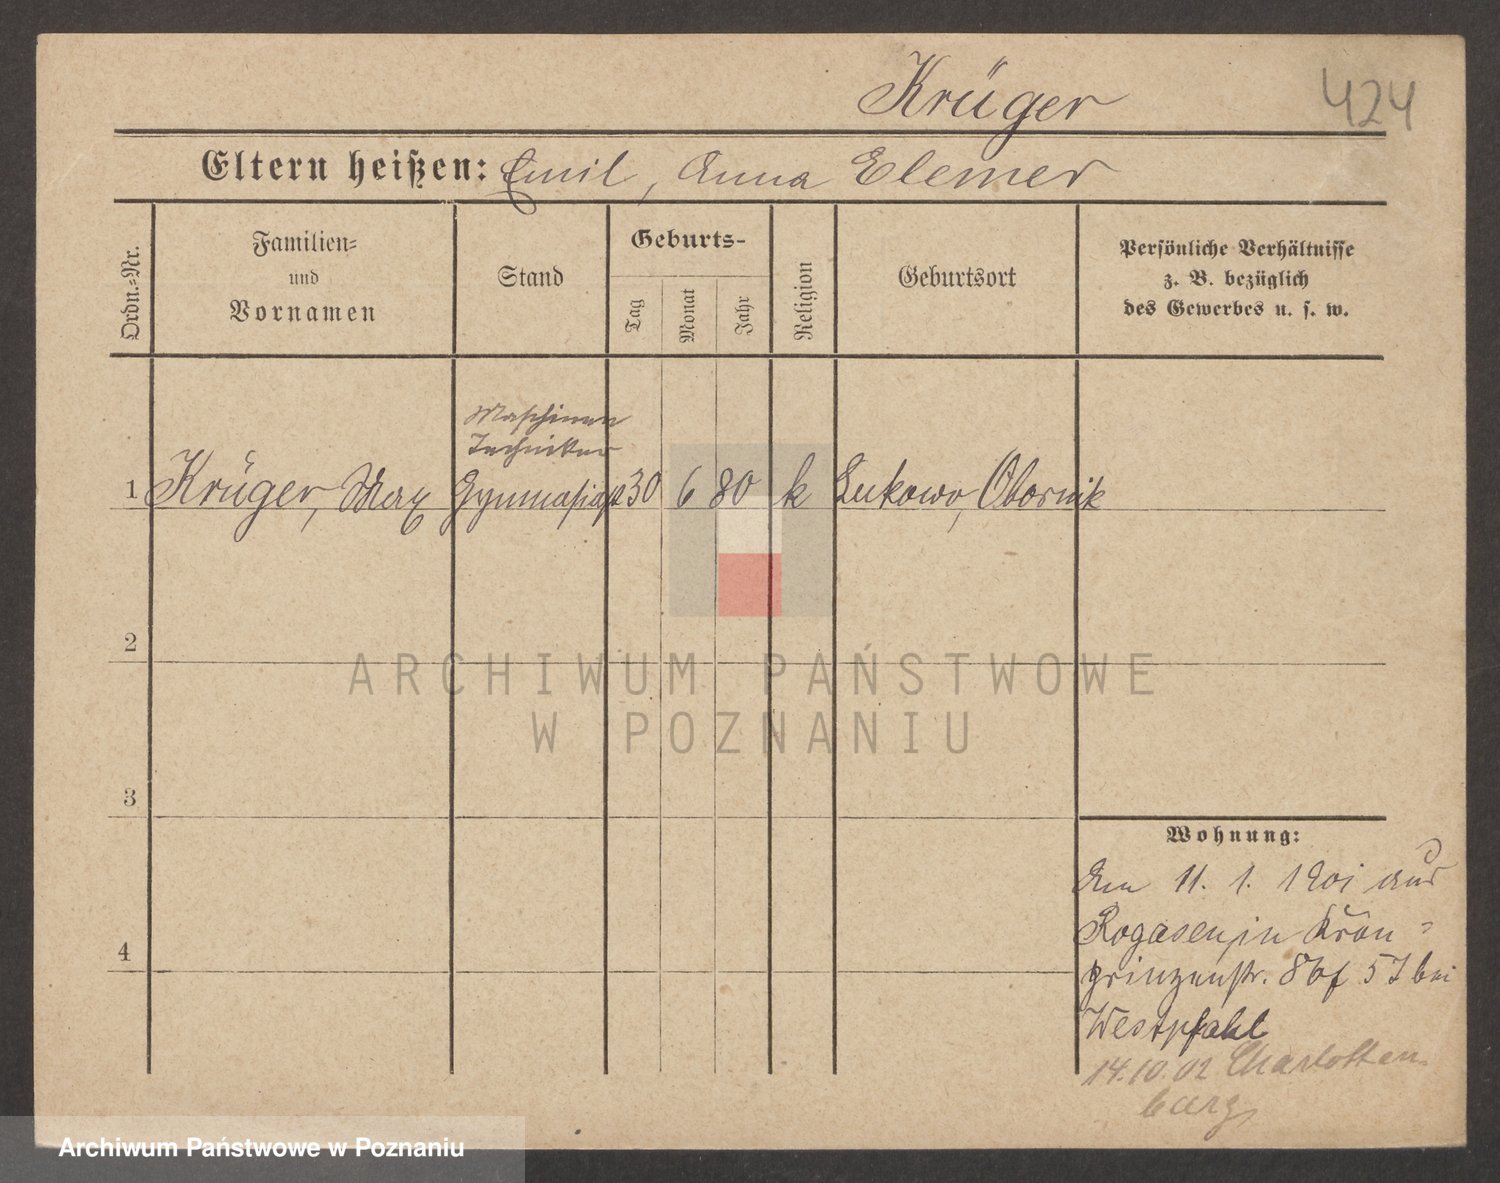 Krüger 424
Eltern heißen: Emil, Anna Elemer
Ordn.-Nr.
Familien-
und
Vornamen
Stand
Geburts-
Tag
Monat
Jahr
Religion
Geburtsort
Persönliche Verhältnisse
z. B. bezüglich
des Gewerbes u. s. w.
Maschinen
Techniker
1 Krüger, Max Gymnasiast 30 6 80 k Lukowo, Obornik
2
ARCHIWUM PAŃSTWOWE
W POZNANIU
3
Wohnung:
Am 11. 1. 1901 aus
Rogasen, in Kron-
4
prinzenstr. bei
Westpfahl
14.10.02 Charlotten-
burg
Archiwum Państwowe w Poznaniu